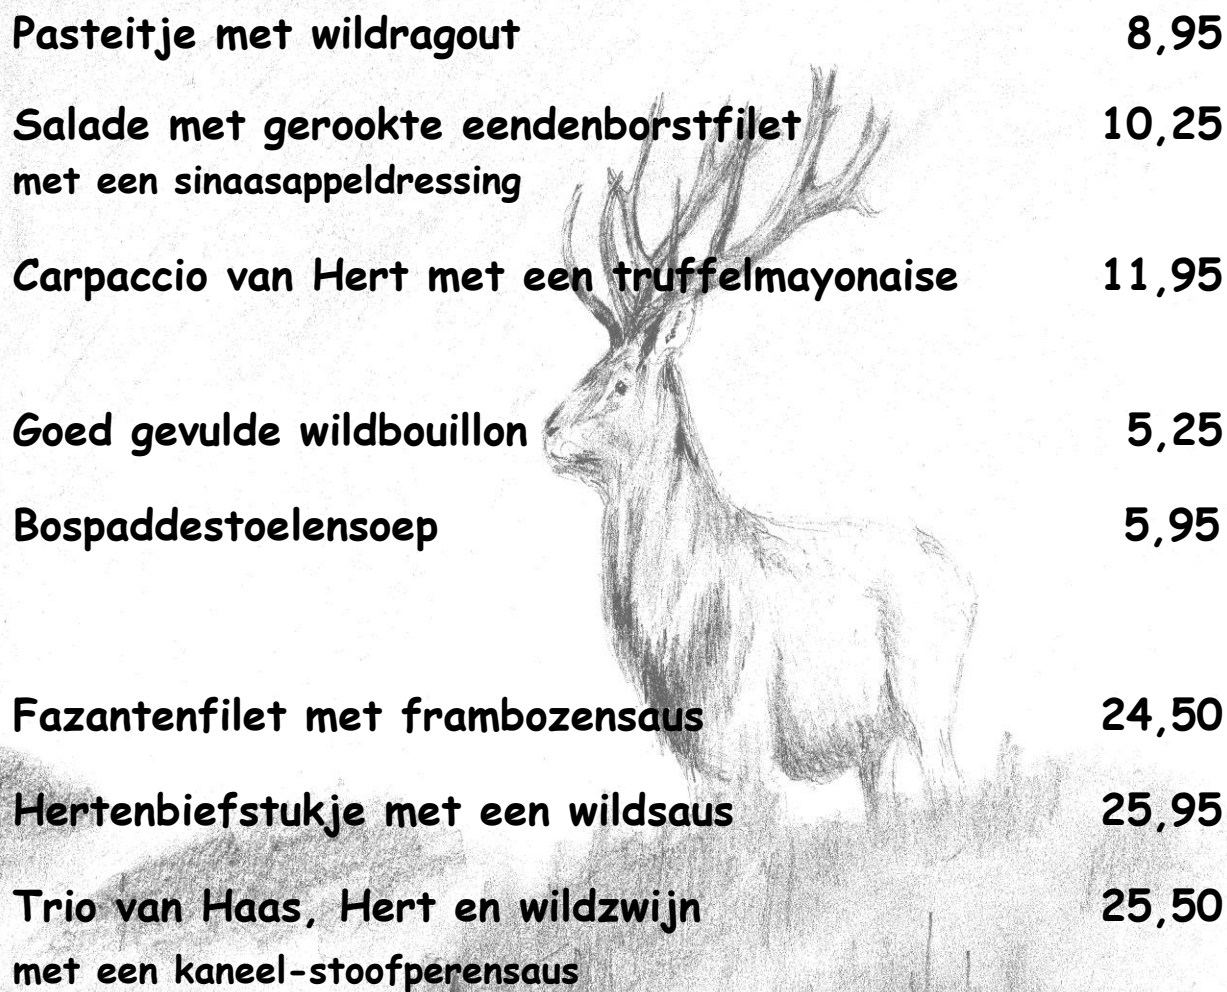 Pasteitje met wildragout 8,95
Salade met gerookte eendenborstfilet 10,25
met een sinaasappeldressing
Carpaccio van Hert met een truffelmayonaise 11,95
Goed gevulde wildbouillon 5,25
Bospaddestoelensoep 5,95
Fazantenfilet met frambozensaus 24,50
Hertenbiefstukje met een wildsaus 25,95
Trio van Haas, Hert en wildzwijn 25,50
met een kaneel-stoofperensaus